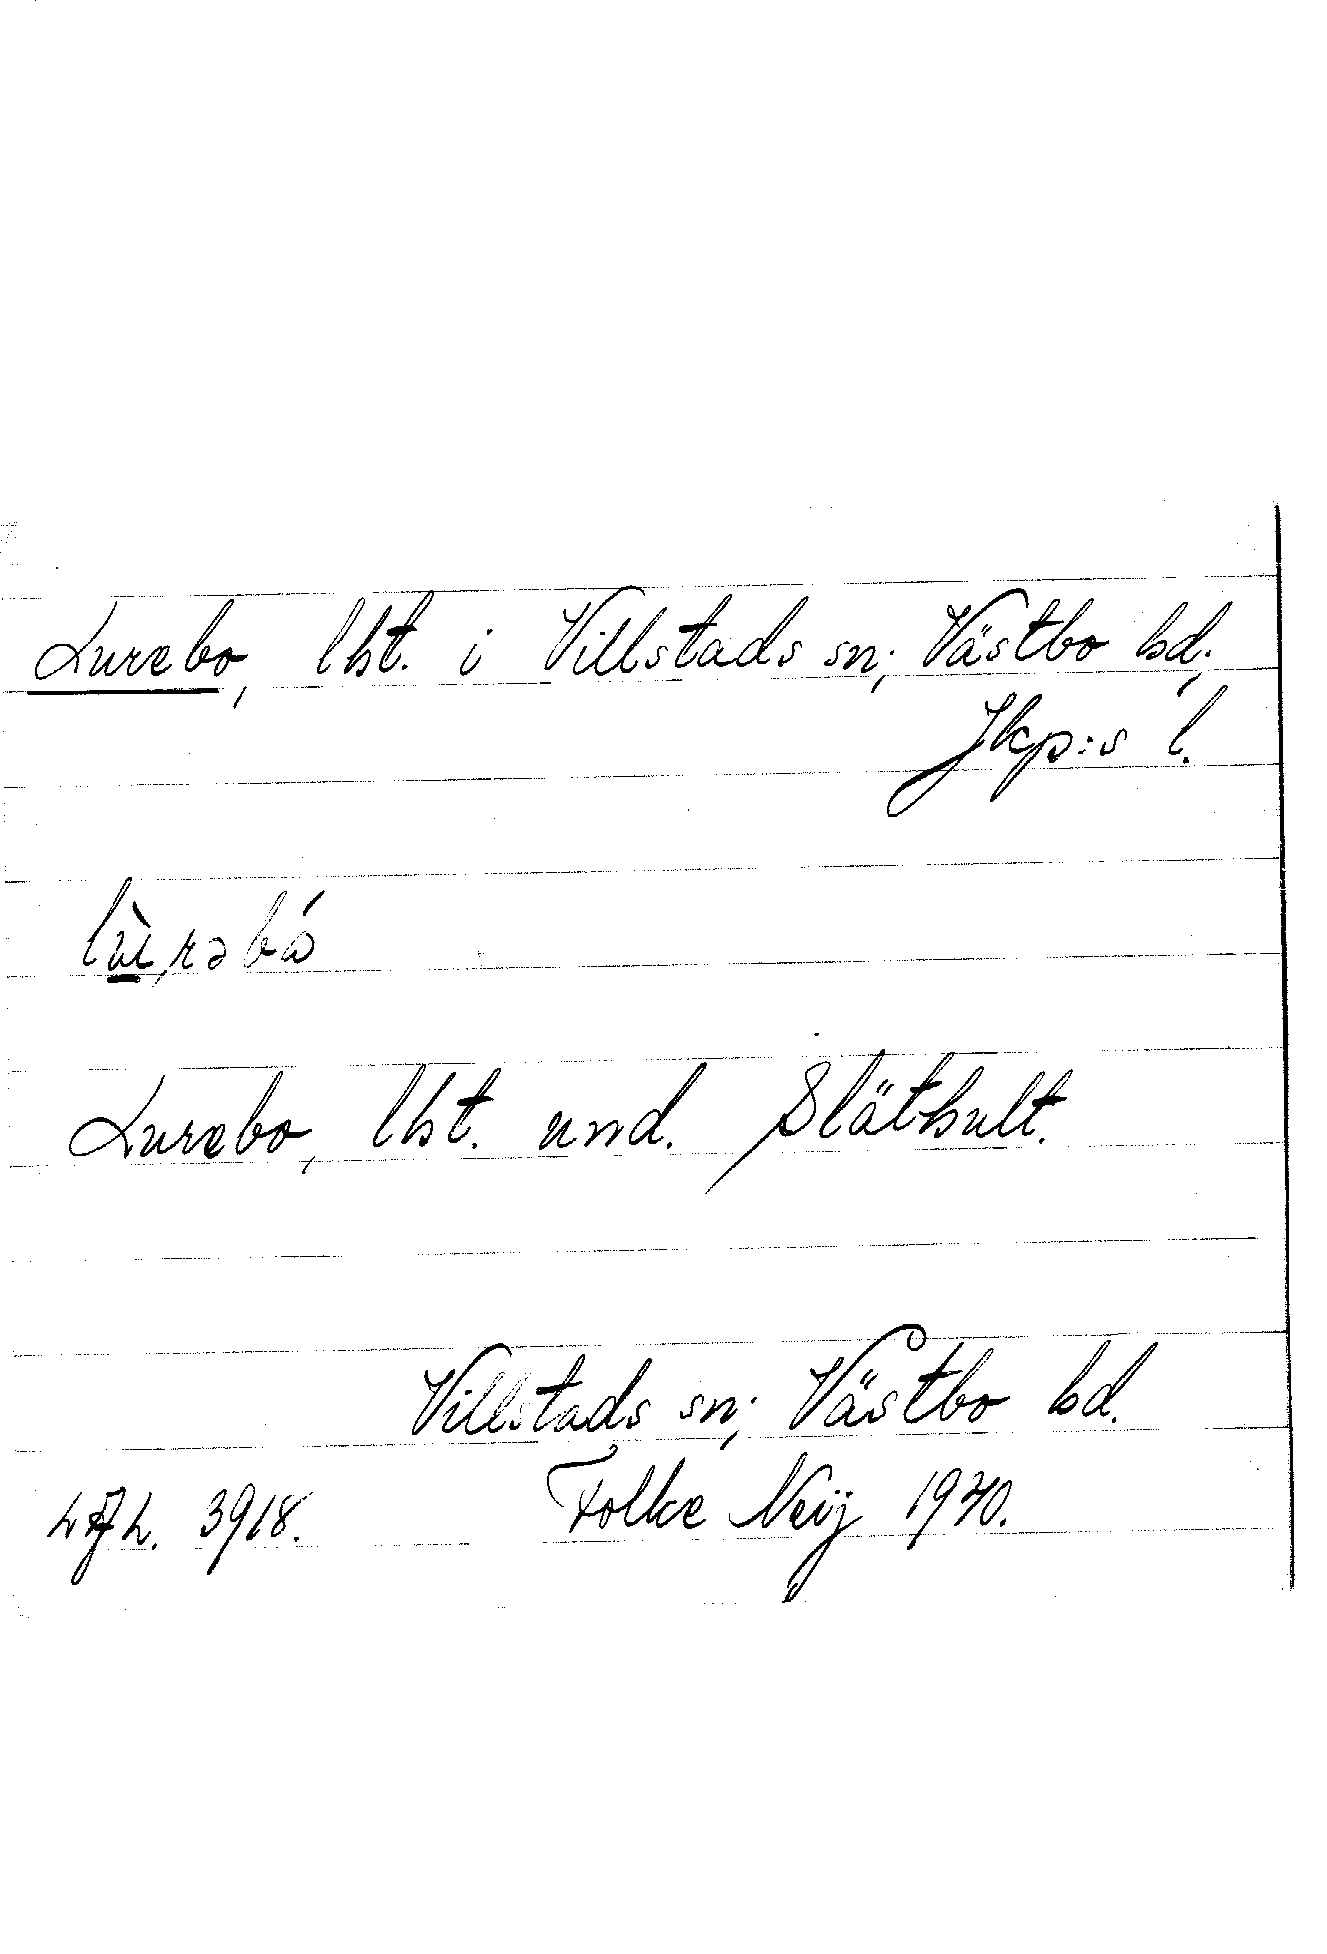 Lurebo, lht. i Villstads sn; Västbo hd;
Jkp:s l.
lù̱rəbó
Lurebo, lht. und. Släthult.
Villstads sn; Västbo hd.
Folke Neij 1940.
3918.